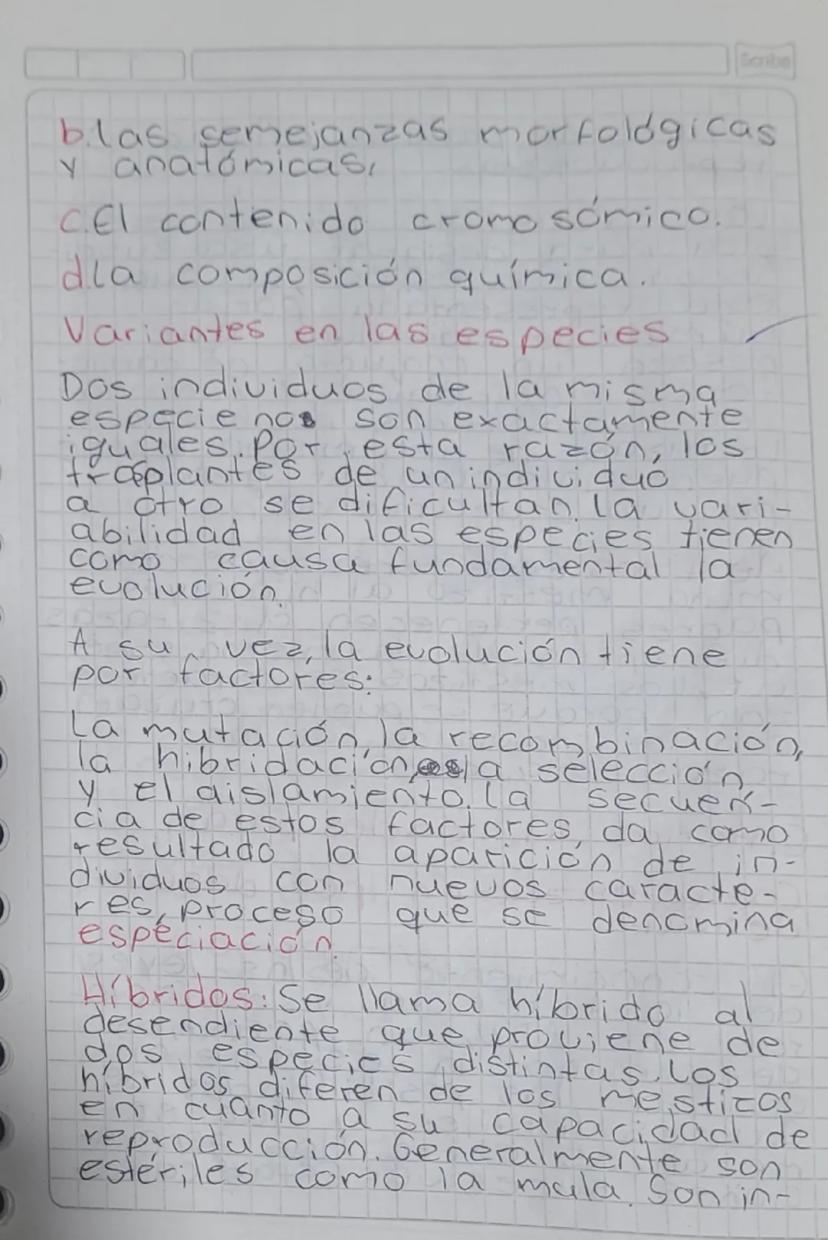 Scribe
b. las semejanzas morfológicas
y anatómicas,
c. El contenido cromosómico.
d. la composición química.
Variantes en las especies
Dos individuos de la misma
especie no son exactamente
iguales. Por esta razón, los
trasplantes de un individuo
a otro se dificultan. la vari-
abilidad en las especies tienen
como causa fundamental la
evolución.
A su vez, la evolución tiene
por factores:
La mutación, la recombinación,
la hibridación, la selección
y el aislamiento. La secuen-
cia de estos factores, da como
resultado la aparición de in-
dividuos con nuevos caracte-
res, proceso que se denomina
especiación.
Híbridos: Se llama híbrido al
desendiente que proviene de
dos especies distintas. Los
híbridos difieren de los mestizos
en cuanto a su capacidad de
reproducción. Generalmente son
estériles como la mula. Son in-